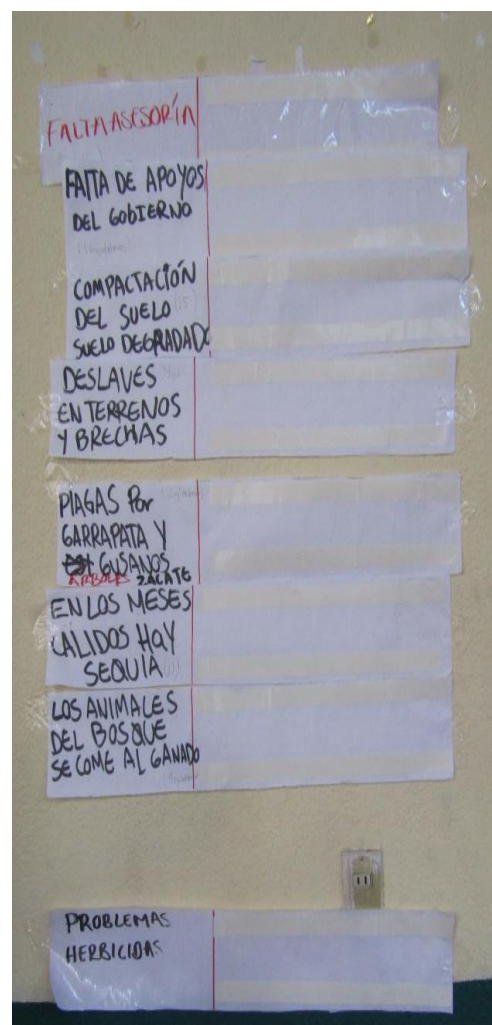 FALTA ASESORÍA
FALTA DE APOYOS
DEL GOBIERNO
COMPACTACIÓN
DEL SUELO (15)
SUELO DEGRADADO
DESLAVES
EN TERRENOS
Y BRECHAS
PLAGAS Por
GARRAPATA Y
GUSANOS
ÁRBOLES ZACATE
EN LOS MESES
CALIDOS HAY
SEQUIA
LOS ANIMALES
DEL BOSQUE
SE COME AL GANADO
PROBLEMAS
HERBICIDAS